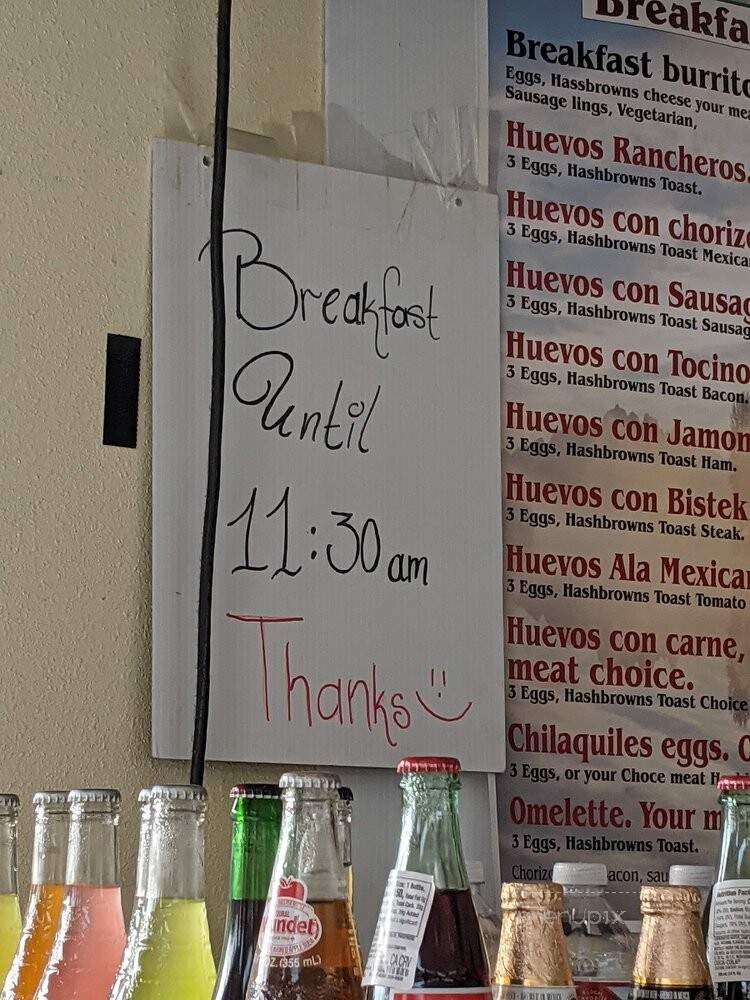 Breakfast
Until
11:30 am
Thanks
Breakfa
Breakfast burrito
Eggs, Hassbrowns cheese your mea
Sausage lings, Vegetarian,
Huevos Rancheros.
3 Eggs, Hashbrowns Toast.
Huevos con chorizo
3 Eggs, Hashbrowns Toast Mexica
Huevos con Sausag
3 Eggs, Hashbrowns Toast Sausag
Huevos con Tocino
3 Eggs, Hashbrowns Toast Bacon.
Huevos con Jamon
3 Eggs, Hashbrowns Toast Ham.
Huevos con Bistek
3 Eggs, Hashbrowns Toast Steak.
Huevos Ala Mexica
3 Eggs, Hashbrowns Toast Tomato
Huevos con carne,
meat choice.
3 Eggs, Hashbrowns Toast Choice
Chilaquiles eggs. O
3 Eggs, or your Choce meat H
Omelette. Your m
3 Eggs, Hashbrowns Toast.
Chorizo acon, sau
Z. (355 mL)